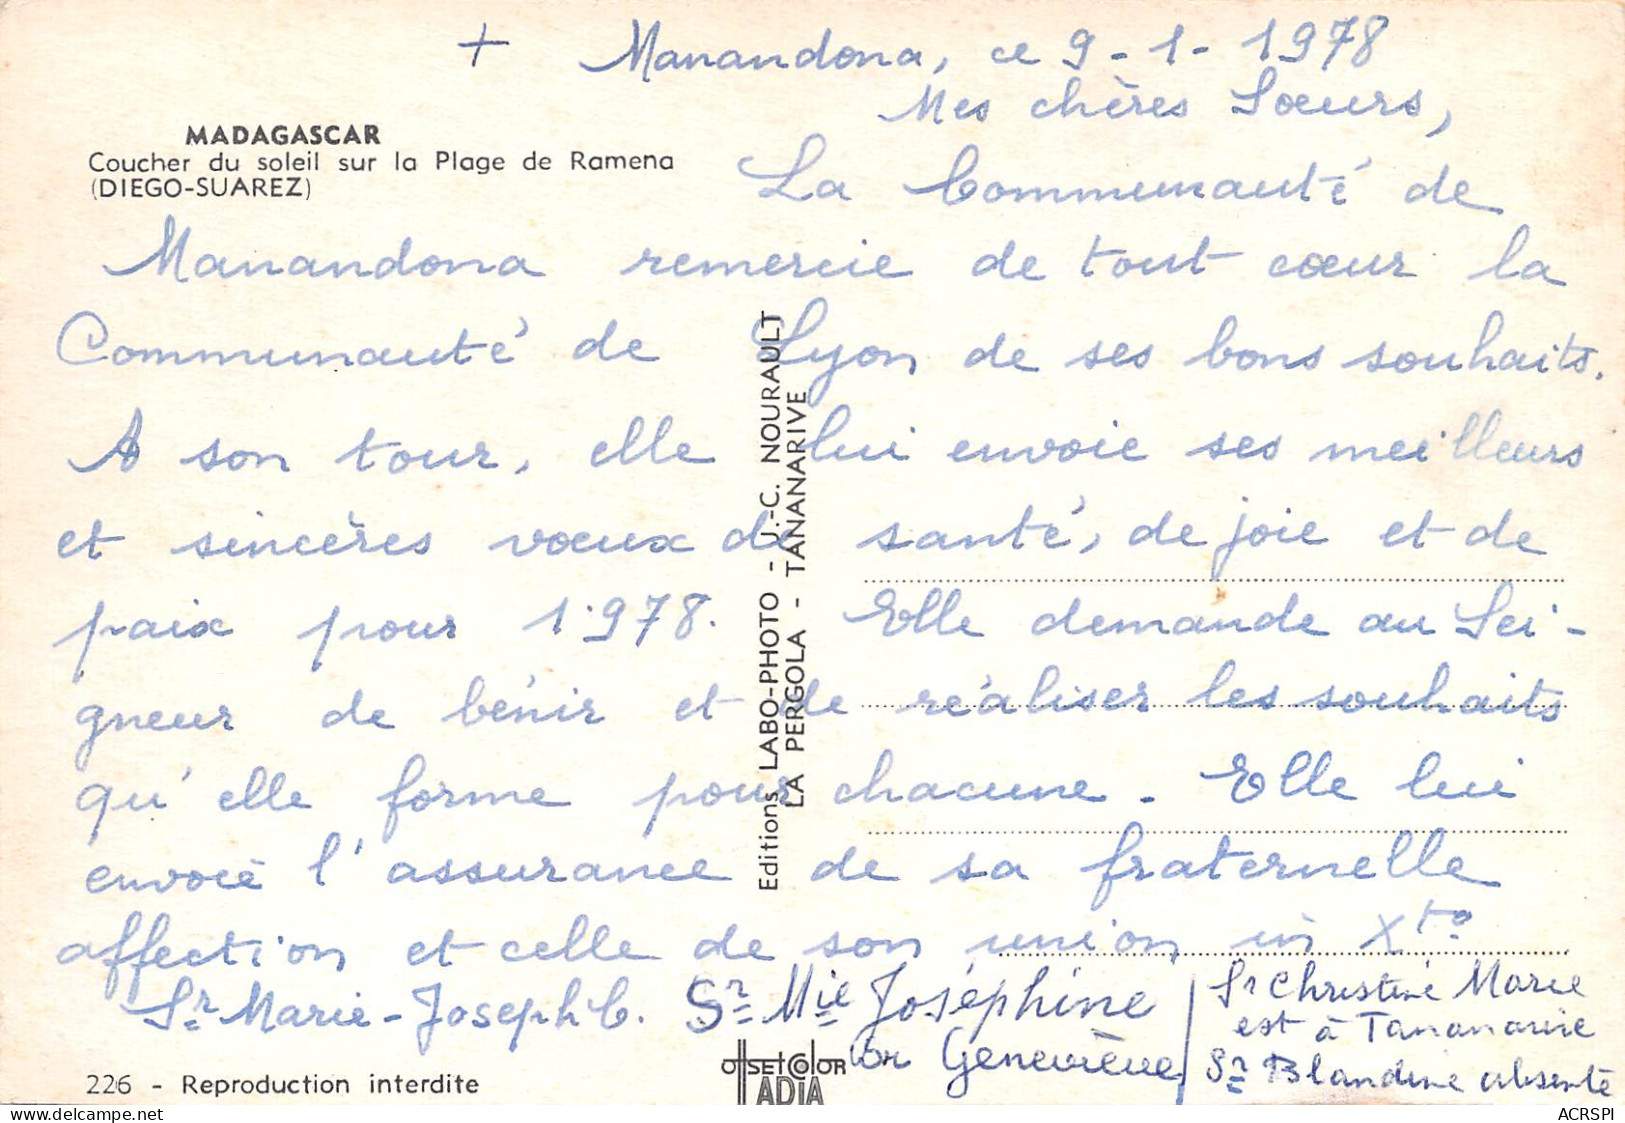 + Manandona, ce 9-1-1978
Mes chères Sœurs,
MADAGASCAR
Coucher du soleil sur la Plage de Ramena
(DIEGO-SUAREZ)
La Communauté de
Manandona remercie de tout cœur la
Communauté de Lyon de ses bons souhaits.
A son tour, elle lui envoie ses meilleurs
et sincères vœux de santé, de joie et de
paix pour 1978. Elle demande au Sei-
gneur de bénir et de réaliser les souhaits
qu'elle forme pour chacune. Elle lui
envoie l'assurance de sa fraternelle
affection et celle de son union in Xto
Sr Marie-Joseph C. Sr Mie Joséphine
Sr Geneviève
Sr Christine Marie
est à Tananarive
Sr Blandine absente
Editions LABO-PHOTO - J.-C. NOURAULT
LA PERGOLA - TANANARIVE
226 - Reproduction interdite
OffSET COLOR
IADIA
ACRSPI